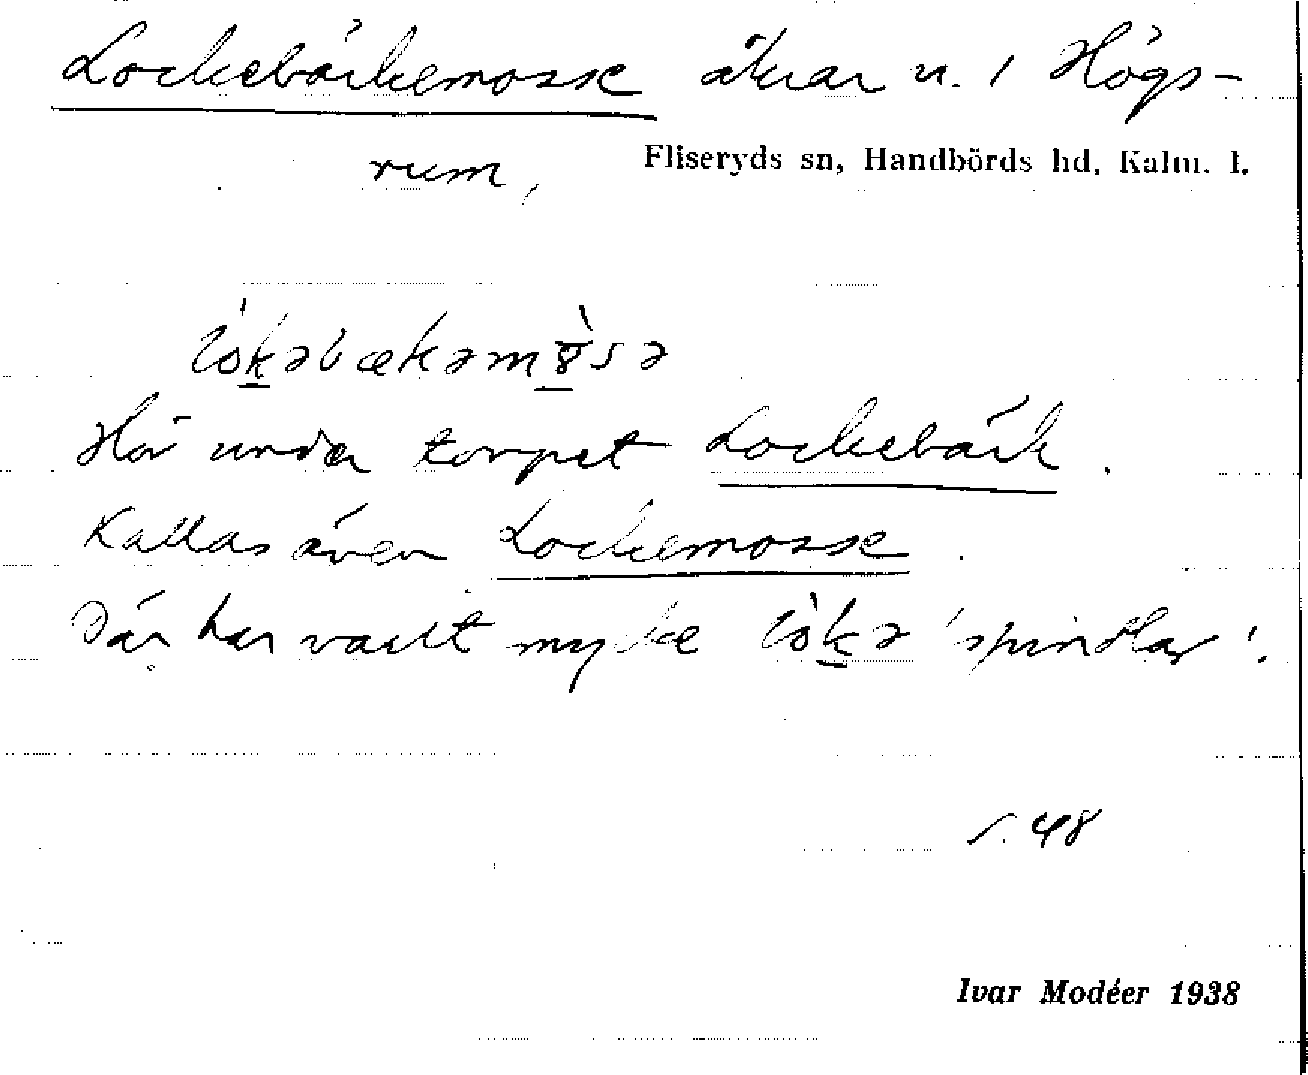 Lockebäckemosse åkrar n. 1 Högs-
rum,
Fliseryds sn, Handbörds hd, Kalm. l.
Hör under torpet Lockebäck.
Kallas även Lockemosse.
Där har varit mycke lòkə 'spindlar'.
s. 48
Ivar Modéer 1938